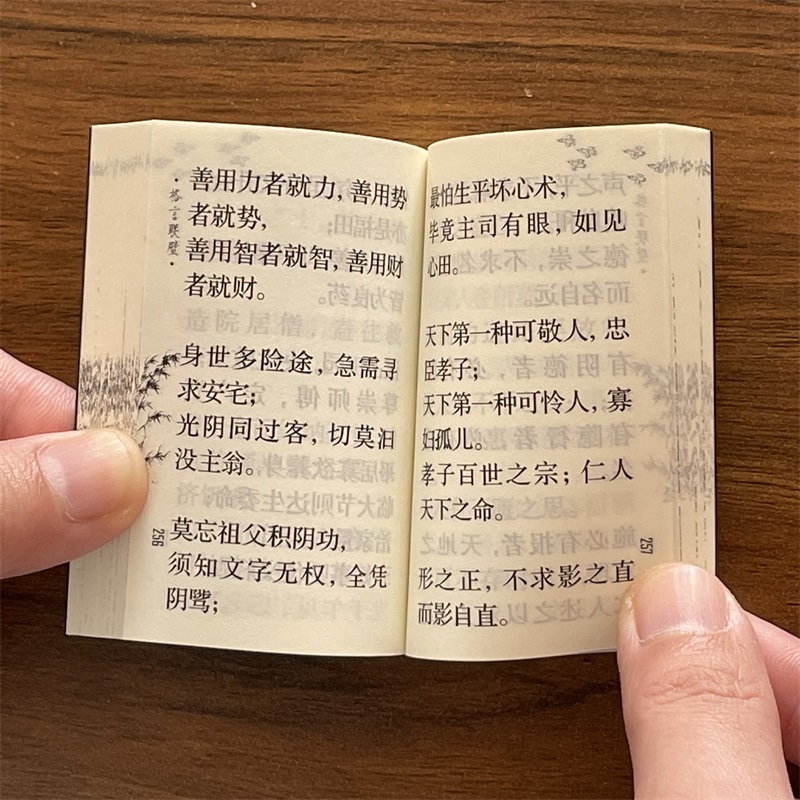 ·格言联璧·
善用力者就力，善用势
者就势，
善用智者就智，善用财
者就财。
身世多险途，急需寻
求安宅；
光阴同过客，切莫汩
没主翁。
莫忘祖父积阴功，
须知文字无权，全凭
阴骘；
256
最怕生平坏心术，
毕竟主司有眼，如见
心田。
天下第一种可敬人，忠
臣孝子；
天下第一种可怜人，寡
妇孤儿。
孝子百世之宗；仁人
天下之命。
形之正，不求影之直
而影自直。
257